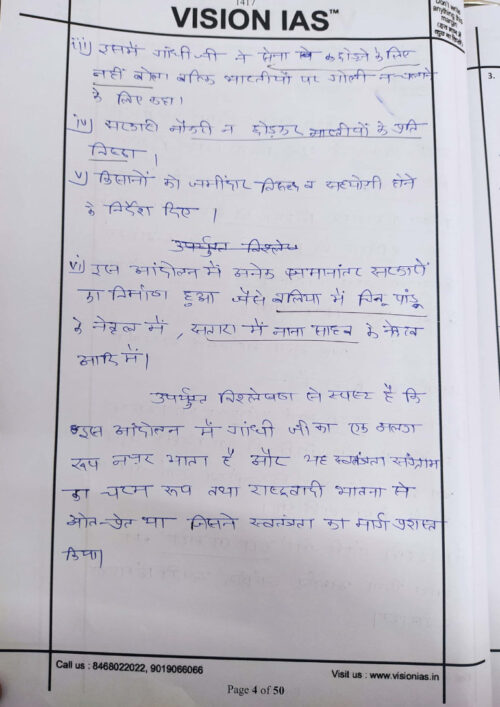 1417
VISION IAS™
Don't write
anything this
margin
3.
iii) इसमें गांधी जी ने सेना को छोड़ने के लिए
नहीं बोला बल्कि भारतीयों पर गोली न चलाने
के लिए कहा।
iv) सरकारी नौकरी न छोड़कर भारतीयों के प्रति
निष्ठा।
v) किसानों को जमींदार विरुद्ध व सहयोगी होने
के निर्देश दिए।
उपर्युक्त विश्लेष
vi) इस आंदोलन में अनेक समानांतर सरकारों
का निर्माण हुआ जैसे बलिया में चितू पांडू
के नेतृत्व में, सतारा में नाना साहब के नेतृत्व
आदि में।
उपर्युक्त विश्लेषण से स्पष्ट है कि
इस आंदोलन में गांधी जी का एक अलग
रूप नजर आता है और यह स्वतंत्रता संग्राम
का चरम रूप तथा राष्ट्रवादी भावना से
ओत-प्रोत था जिसने स्वतंत्रता का मार्ग प्रशस्त
किया।
Call us : 8468022022, 9019066066
Visit us : www.visionias.in
Page 4 of 50